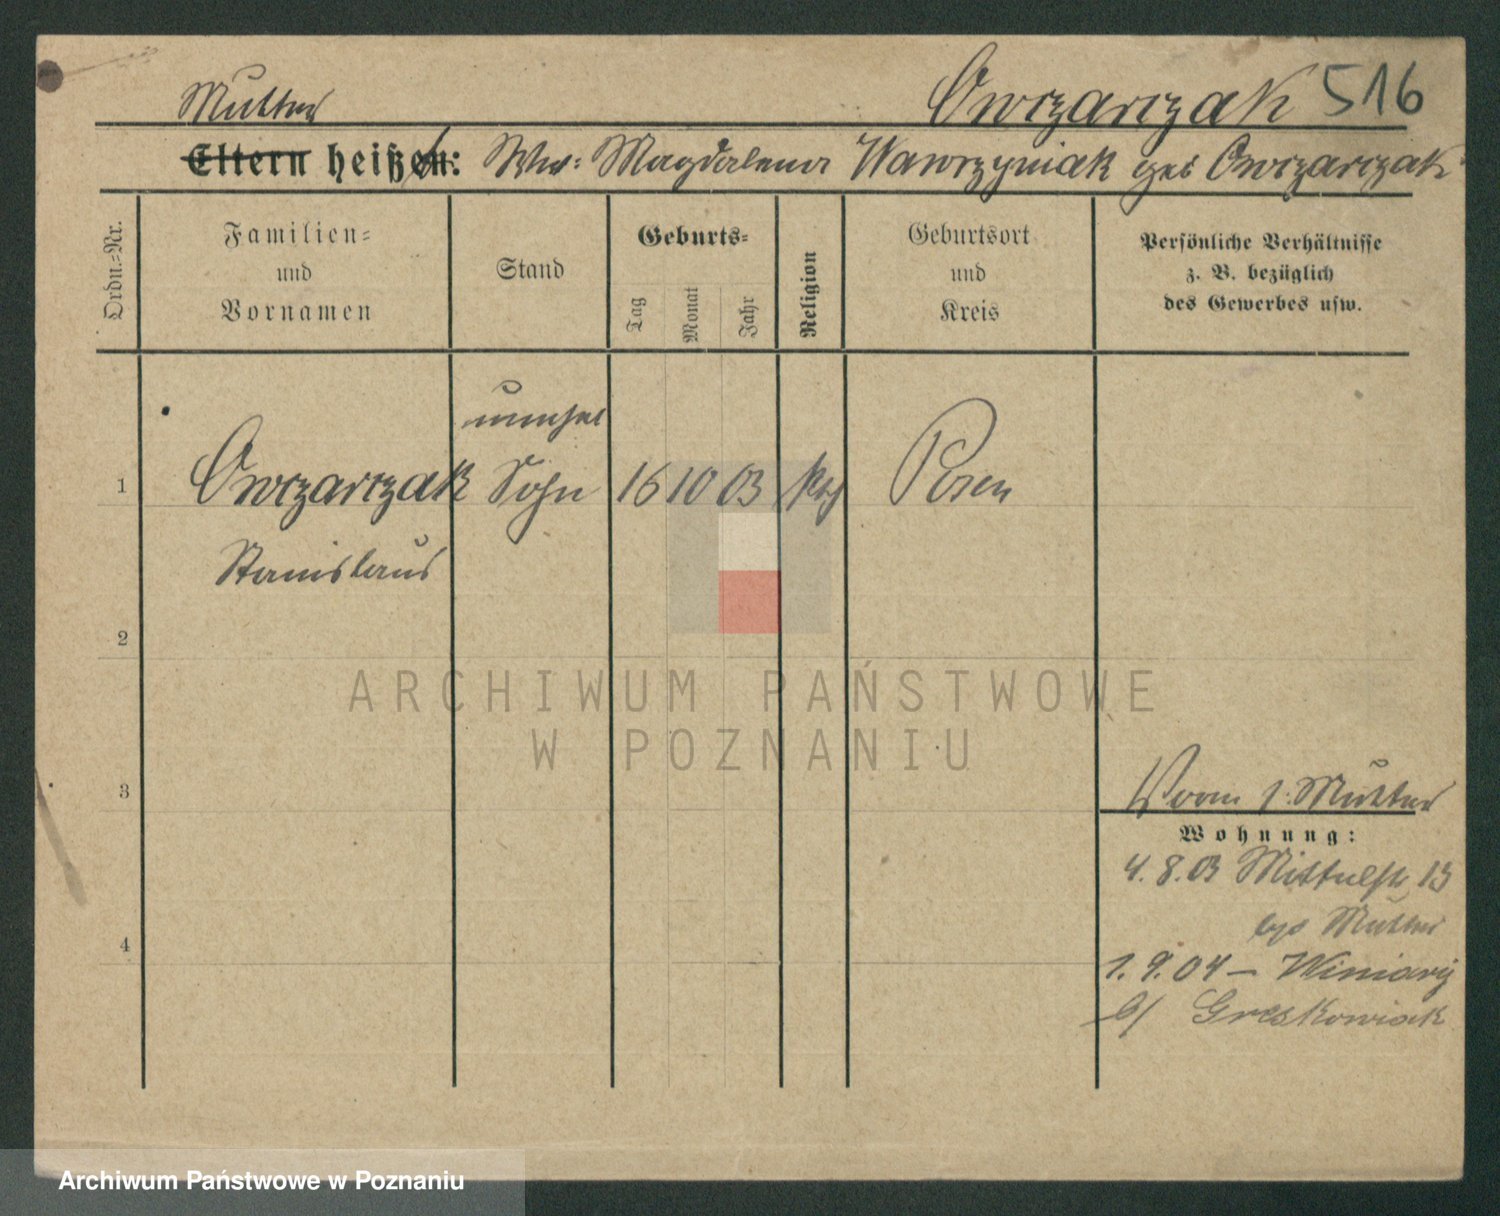 Owczarczak 516
Mutter
Eltern heißen: Ww: Magdalena Wawrzyniak geb Owczarczak
Ordn.=Nr.
Familien=
und
Vornamen
Stand
Geburts=
Tag
Monat
Jahr
Religion
Geburtsort
und
Kreis
Persönliche Verhältnisse
z. B. bezüglich
des Gewerbes usw.
unehel
1 Owczarczak Sohn 16 10 03 Posen
Stanislaus
2
3
4
ARCHIWUM PAŃSTWOWE
W POZNANIU
Vorm : Mutter
Wohnung:
4. 8. 03 Mittelstr 13
Mutter
1. 9. 04 – Winiary
b/ Greskowiak
Archiwum Państwowe w Poznaniu